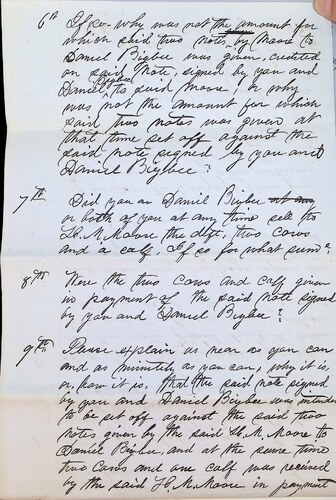 6th If so - why was not the amount for
which said two notes, by Moore to
Daniel Bigbee was given, credited
on said note, signed by you and
Daniel Bigbee to said Moore, or why
was not the amount for which
said two notes was given at
that time set off against the
said note signed by you and
Daniel Bigbee?
7th Did you or Daniel Bigbee
or both of you at any time sell to
H. M. Moore the deft. two cows
and a calf, If so for what sum?
8th Were the two cows and calf given
in payment of the said note signed
by you and Daniel Bigbee?
9th Please explain as near as you can
and as minutely as you can, why it is,
or how it is, that the said note signed
by you and Daniel Bigbee was intended
to be set off against the said two
notes given by the said H. M. Moore to
Daniel Bigbee, and at the same time
two cows and one calf was received
by the said H. M. Moore in payment